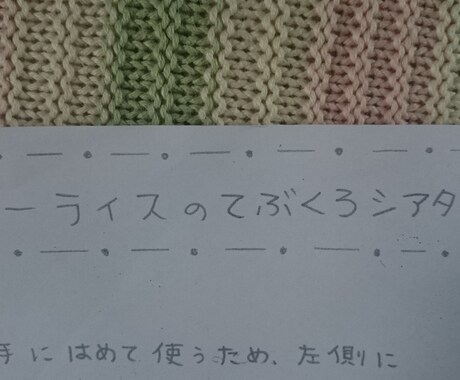 ーライスのてぶくろシアタ
手にはめて使うため、左側に